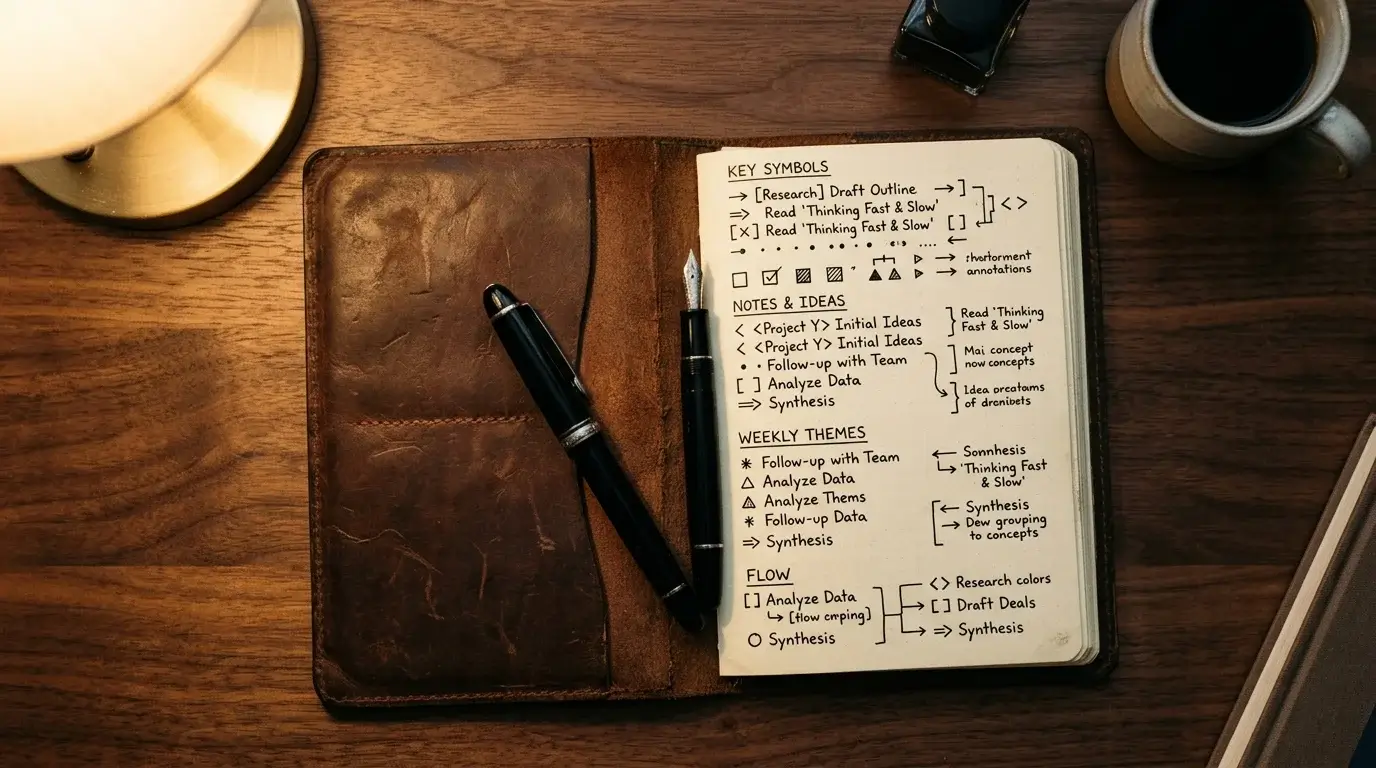 KEY SYMBOLS
→ [Research] Draft Outline →]
⇒ Read 'Thinking Fast & Slow'
[×] Read 'Thinking Fast & Slow' [ ]
< >
annotations
NOTES & IDEAS
< <Project Y> Initial Ideas
< <Project Y> Initial Ideas
• • Follow-up with Team
[ ] Analyze Data
⇒ Synthesis
} Read 'Thinking
Fast & Slow'
] Mai concept
now concepts
} Idea
of
WEEKLY THEMES
* Follow-up with Team
△ Analyze Data
△ Analyze Thems
* Follow-up Data
⇒ Synthesis
← Sonnhesis
↳ 'Thinking Fast
& Slow'
← Synthesis
→ Dew grouping
to concepts
FLOW
[ ] Analyze Data
↳ [flow cmping]
○ Synthesis
<> Research colors
[ ] Draft Deals
⇒ Synthesis